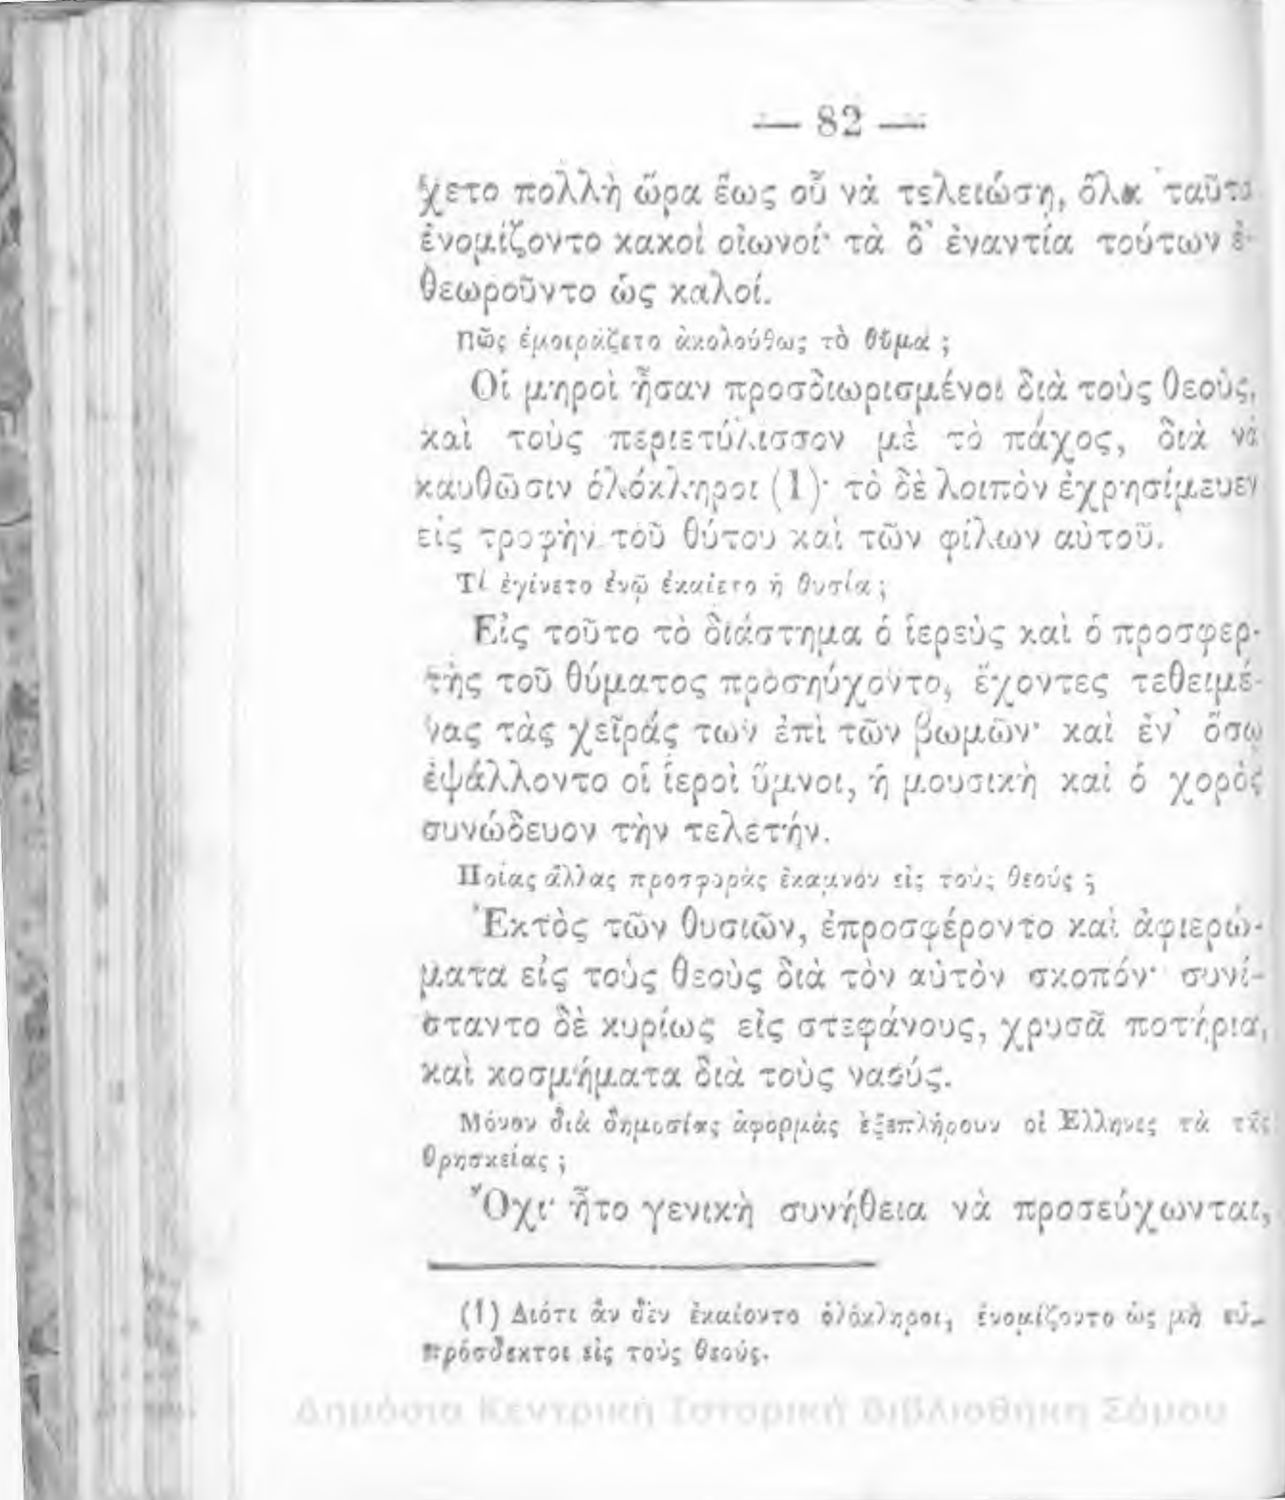 — 82 —
χετο πολλὴ ὥρα ἕως οὗ νὰ τελειώσῃ, ὅλα ταῦτα
ἐνομίζοντο κακοὶ οἰωνοί· τὰ δ' ἐναντία τούτων ἐ-
θεωροῦντο ὡς καλοί.
Πῶς ἐμοιράζετο ἀκολούθως τὸ θῦμα ;
Οἱ μηροὶ ἦσαν προσδιωρισμένοι διὰ τοὺς θεούς,
καὶ τοὺς περιετύλισσον μὲ τὸ πάχος, διὰ νὰ
καυθῶσιν ὁλόκληροι (1)· τὸ δὲ λοιπὸν ἐχρησίμευεν
εἰς τροφὴν τοῦ θύτου καὶ τῶν φίλων αὐτοῦ.
Τί ἐγίνετο ἐνῷ ἐκαίετο ἡ θυσία ;
Εἰς τοῦτο τὸ διάστημα ὁ ἱερεὺς καὶ ὁ προσφερ-
τὴς τοῦ θύματος προσηύχοντο, ἔχοντες τεθειμέ-
νας τὰς χεῖράς των ἐπὶ τῶν βωμῶν· καὶ ἐν' ὅσῳ
ἐψάλλοντο οἱ ἱεροὶ ὕμνοι, ἡ μουσικὴ καὶ ὁ χορὸς
συνώδευον τὴν τελετήν.
Ποίας ἄλλας προσφορὰς ἔκαμνον εἰς τοὺς θεούς ;
Ἐκτὸς τῶν θυσιῶν, ἐπροσφέροντο καὶ ἀφιερώ-
ματα εἰς τοὺς θεοὺς διὰ τὸν αὐτὸν σκοπόν· συνί-
σταντο δὲ κυρίως εἰς στεφάνους, χρυσᾶ ποτήρια,
καὶ κοσμήματα διὰ τοὺς ναούς.
Μόνον διὰ δημοσίας ἀφορμὰς ἐξεπλήρουν οἱ Ἕλληνες τὰ τῆς
θρησκείας ;
Ὄχι· ἦτο γενικὴ συνήθεια νὰ προσεύχωνται,
(1) Διότι ἂν δὲν ἐκαίοντο ὁλόκληροι, ἐνομίζοντο ὡς μὴ εὐ-
πρόσδεκτοι εἰς τοὺς θεούς.
Δημόσια Κεντρική Ιστορική Βιβλιοθήκη Σάμου